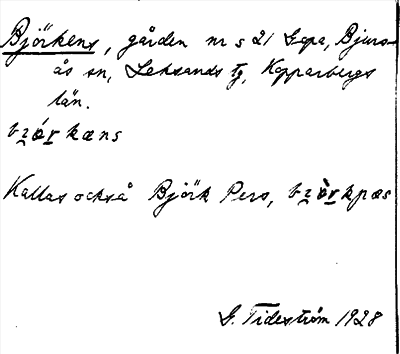 Björkens, gården nr s 21 Gopa, Bjurs-
ås sn, Leksands tg, Kopparbergs
län.
bzo̱rkæns
Kallas också Björk Pers, bzòrkpæs
G. Tideström 1928